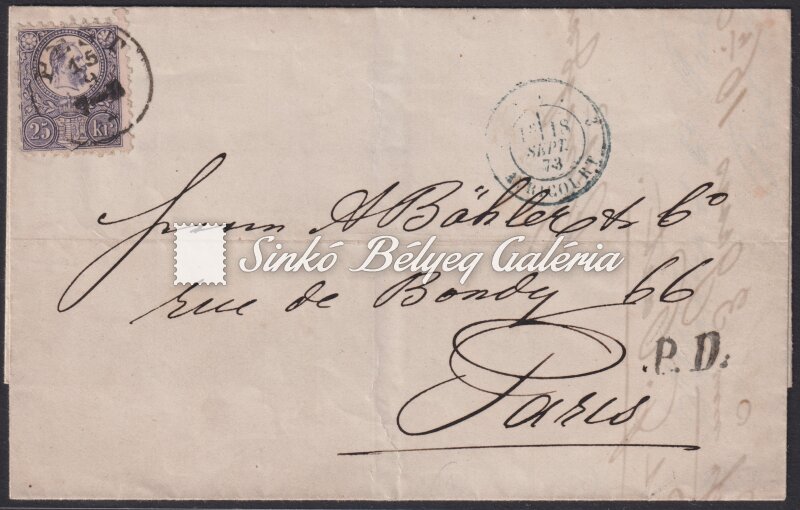 PEST
15
9
25 Kr
18
SEPT.
73
AVRICOURT
Herrn A Bähler & Co
Sinkó Bélyeg Galéria
rue de Bondy 66
Paris
P.D.